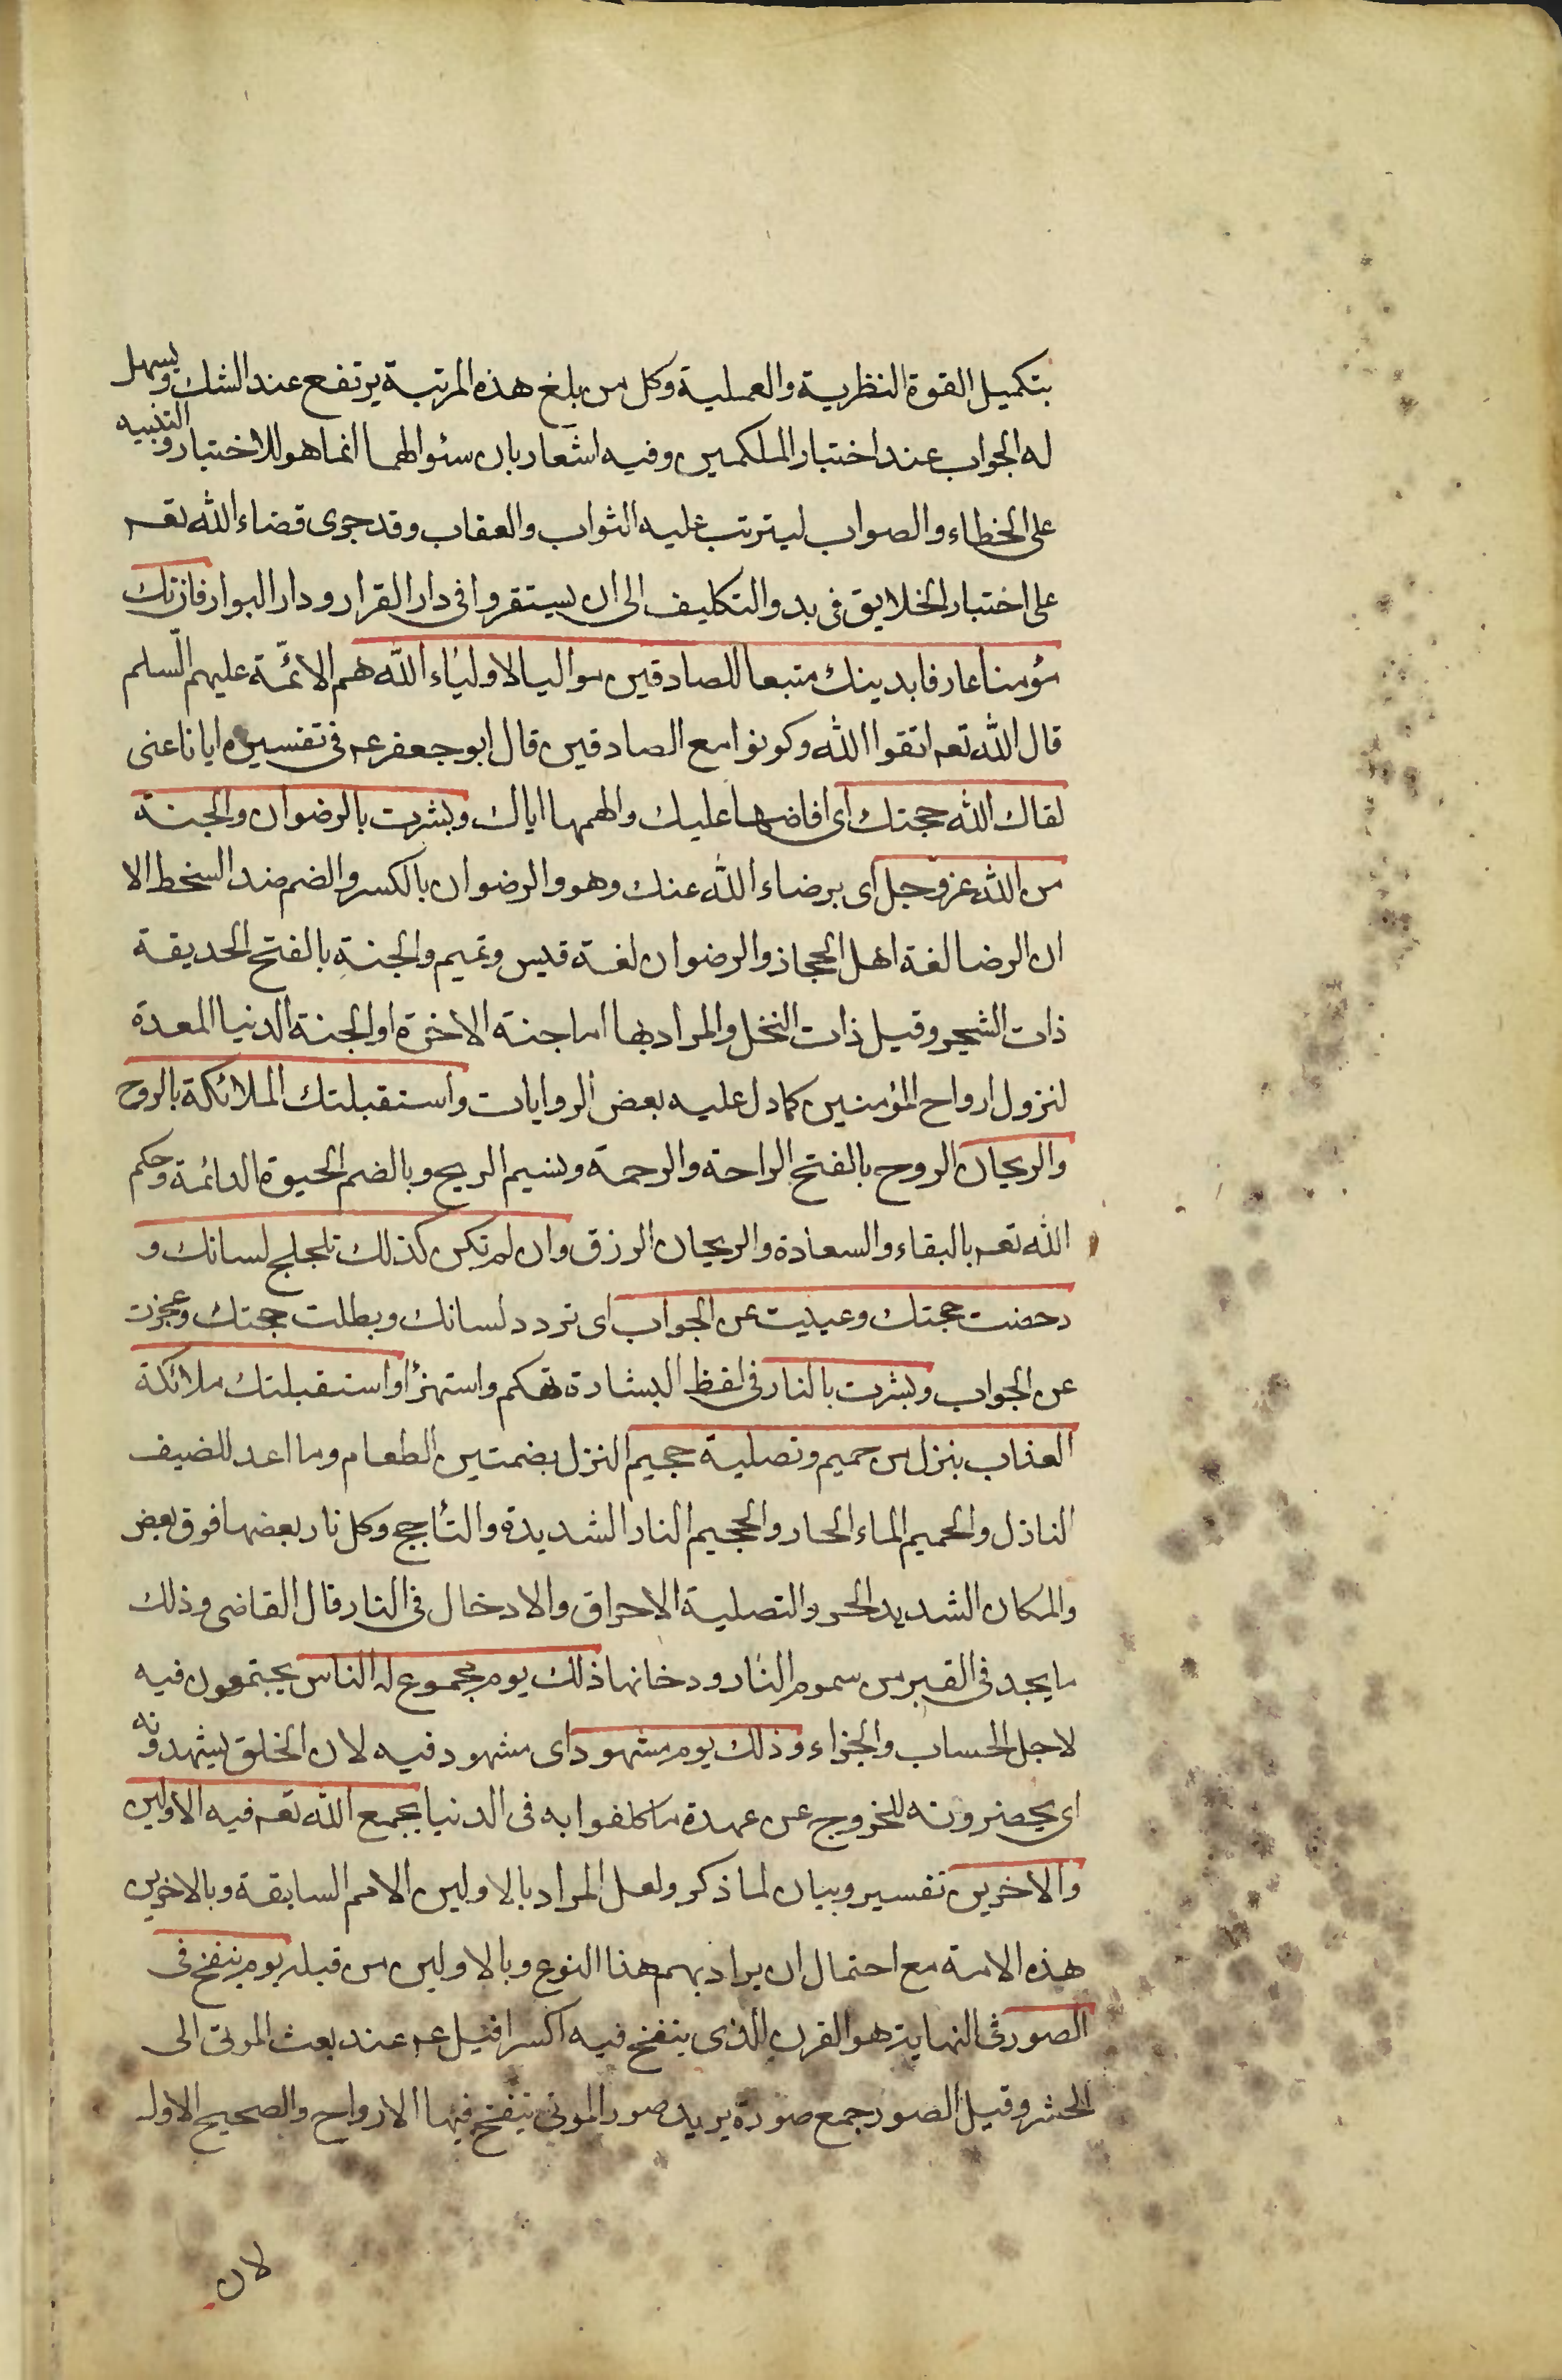 بتكميل القوة النظرية والعملية وكل من بلغ هذه المرتبة يرتفع عند الشك ويسهل
له الجواب عند اختبار الملكمين وفيه اشعار بان سئوالهما انما هو للاختبار والتنبيه
على الخطاء والصواب ليترتب عليه الثواب والعقاب وقد جرى قضاء الله تعـ
على اختبار الخلايق فى بدو التكليف الى ان يستقروا فى دار القرار ودار البوار فان تك
مؤمنا عارفا بدينك متبعا للصادقين مواليا لاولياء الله هم الائمّة عليهم السلم
قال الله تعـ اتقوا الله وكونوا مع الصادقين قال ابو جعفر عـ فى تفسيره ايانا عنى
لقاك الله حجتك اى افاضها عليك والهمها اياك وبشرت بالرضوان والجنة
من الله عز وجل اى برضاء الله عنك وهو والرضوان بالكسر والضم ضد السخط الا
ان الرضا لغة اهل الحجاز والرضوان لغة قيس وتميم والجنة بالفتح الحديقة
ذات الشجر وقيل ذات النخل والمراد بها اما جنة الاخرة او الجنة الدنيا المعدة
لنزول ارواح المؤمنين كما دل عليه بعض الروايات واستقبلتك الملائكة بالروح
والريحان الروح بالفتح الراحة والرحمة ونسيم الريح وبالضم الحيوة الدائمة وحكم
الله تعـ بالبقاء والسعادة والريحان الرزق وان لم تكن كذلك تلجلج لسانك و
دحضت حجتك وعييت عن الجواب اى تردد لسانك وبطلت حجتك وعجزت
عن الجواب وبشرت بالنار فى لفظ البشارة تهكم واستهزأ واستقبلتك ملائكة
العذاب بنزل من حميم وتصلية جحيم النزل بضمتين الطعام وما اعد للضيف
النازل والحميم الماء الحار والجحيم النار الشديدة والتأجج وكل نار بعضها فوق بعض
والمكان الشديد الحر والتصلية الاحراق والادخال فى النار قال القاضى وذلك
ما يجد فى القبر من سموم النار ودخانها ذلك يوم مجموع له الناس يجتمعون فيه
لاجل الحساب والجزاء وذلك يوم مشهود اى مشهود فيه لان الخلق يشهدونه
اى يحضرونه للخروج عن عهدة ما كلفوا به فى الدنيا يجمع الله تعـ فيه الاولين
والاخرين تفسير وبيان لما ذكر ولعل المراد بالاولين الامم السابقة وبالاخرين
هذه الامة مع احتمال ان يراد بهم هذا النوع وبالاولين من قبله يوم ينفخ فى
الصور فى النهاية هو القرن الذى ينفخ فيه اسرافيل عـ عند بعث الموتى الى
الحشر وقيل الصور جمع صورة يريد صور الموتى ينفخ فيها الارواح والصحيح الاول
لان